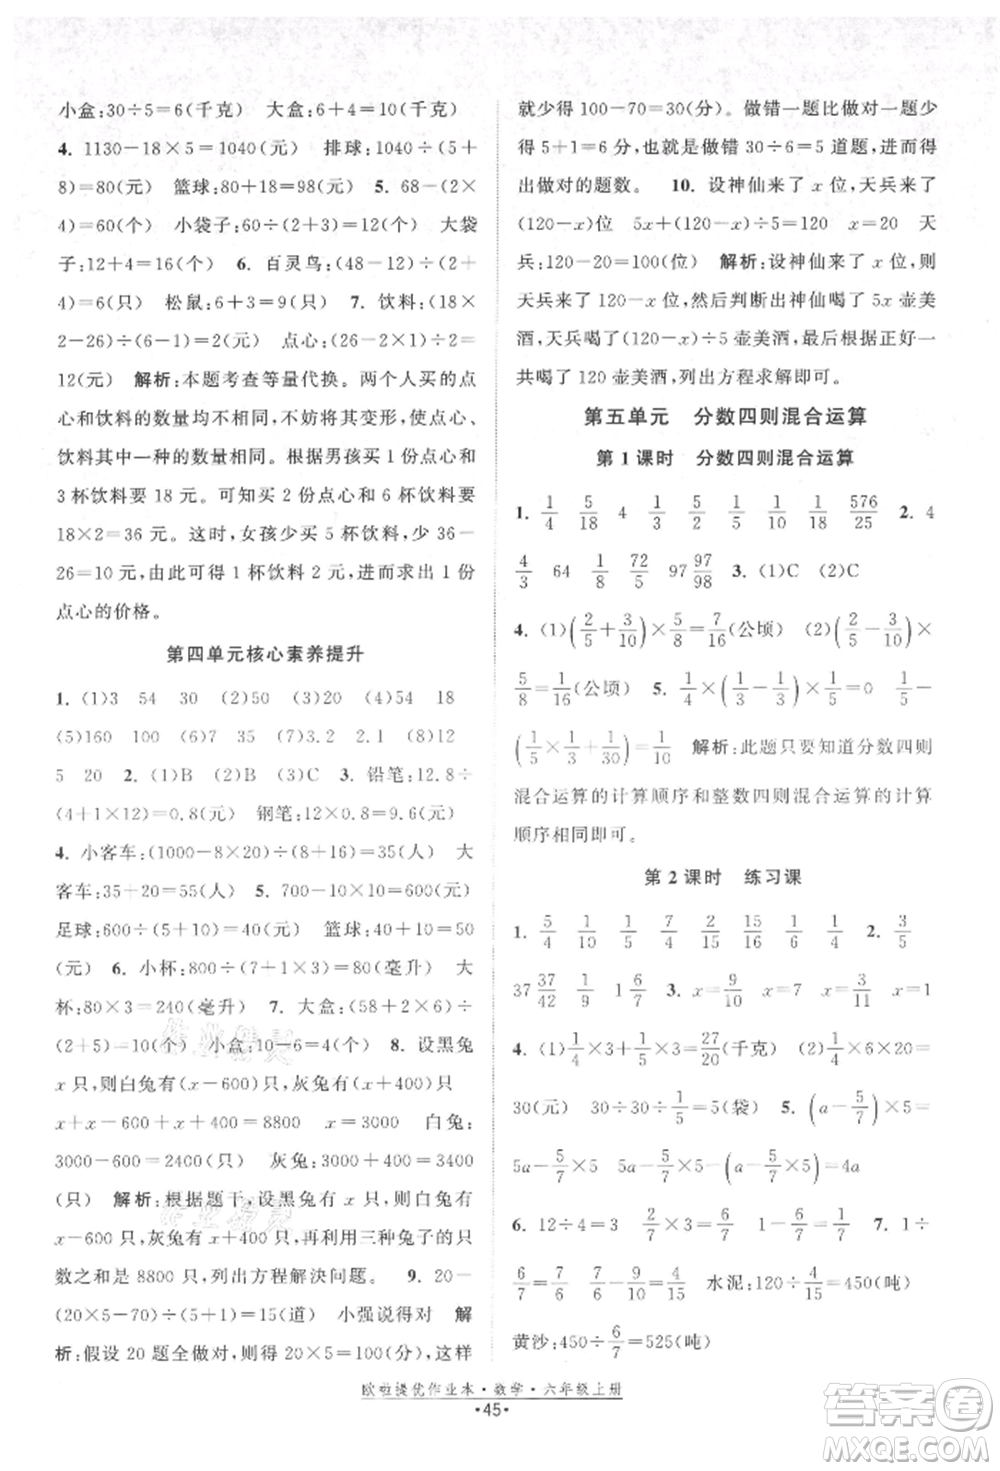 小盒:30÷5=6(千克)　大盒:6+4=10(千克)
4. 1130-18×5=1040(元)　排球:1040÷(5+
8)=80(元)　篮球:80+18=98(元)　5. 68-(2×
4)=60(个)　小袋子:60÷(2+3)=12(个)　大袋
子:12+4=16(个)　6. 百灵鸟:(48-12)÷(2+
4)=6(只)　松鼠:6+3=9(只)　7. 饮料:(18×
2-26)÷(6-1)=2(元)　点心:(26-2)÷2=
12(元)　解析:本题考查等量代换。两个人买的点
心和饮料的数量均不相同,将其变形,使点心、
饮料其中一种的数量相同。由男孩买 1 份点心和
3 杯饮料要用 18 元。可知买 2 份点心和 6 杯饮料要
18×2=36 元。这时,女孩少买 5 杯饮料,少 36
-26=10 元,由此可得 1 杯饮料 2 元,进而求出 1 份
点心的价格。
第四单元核心素养提升
1. (1)3　54　30　(2)50　(3)20　(4)54　18
(5)160　100　(6)540　(7)3.2　2.1　(8)12
5　20　2. (1)B　(2)B　(3)C　3. 铅笔:12.8÷
(4+1×12)=0.8(元)　钢笔:12×0.8=9.6(元)
4. 小客车:(1000-8×20)÷(8+16)=35(人)　大
客车:35+20=55(人)　5. 700-10×10=600(元)
足球:600÷(5+10)=40(元)　篮球:40+10=50
(元)　6. 小杯:800÷(7+1×3)=80(毫升)　大
杯:80×3=240(毫升)　7. 大盒:(58+2×6)÷
(2+5)=10(个)　小盒:10-6=4(个)　8. 设黑兔
x 只,则白兔有(x-600)只,灰兔有(x+400)只
x+x-600+x+400=8800　x=3000　白兔:
3000-600=2400(只)　灰兔:3000+400=3400
(只)　解析:根据题干,设黑兔有 x 只,则白兔有
x-600 只,灰兔有 x+400 只,再根据三种兔子的只
数之和是 8800 只,列出方程解决问题。　9. 20-
(20×5-70)÷(5+1)=15(道)　小强说得对　解
析:假设 20 题全做对,就得 20×5=100(分),这样
就少得 100-70=30(分)。做错一题比做对一题少得
5+1=6 分,也就是说,做错 30÷6=5 道题,从而得
出做对的题数。　10. 设神仙来了 x 位,天兵来了
(120-x)位　5x+(120-x)÷5=120　x=20　天
兵:120-20=100(位)　解析:设神仙来了 x 位,则
天兵来了 120-x 位。然后判断出神仙喝了 5x 壶美
酒,天兵喝了(120-x)÷5 壶美酒,根据正好一
共喝了 120 壶美酒,列出方程求解即可。
第五单元　分数四则混合运算
第 1 课时　分数四则混合运算
1. 1/4　5/18　4　1/3　1/2　1/5　1/10　1/18　576/25　2. 4
4/3　64　1/8　72/5　97 97/98　3. (1)C　(2)C
4. (1)(2/5+3/10)×5/8=7/16(公顷)　(2)(2/5-3/10)×
5/8=1/16(公顷)　5. 1/4×(1/3-1/5×5/3)=0　1/5-
(1/5×1/3+1/30)=1/10　解析:此题只要知道分数四则
混合运算的计算顺序和整数四则混合运算的计算
顺序相同即可。
第 2 课时　练习课
1. 5/4　1/10　1/5　7/4　2/15　1/6　1/4　2. 3/5
37 37/42　1/9　3. x=9/10　x=4/7　x=1
4. (1)1/4×3+1/5×3=27/20(千克)　(2)1/4×6×20=
30(元)　30÷30÷1/5=5(袋)　5. (a-5/7)×5=
5a-5/7×5　5a-5/7-(a-5/7)=4a
6. 12÷4÷1/5=15(只)　15×2/5=6(只)　7. 1/7+
6/7÷6=2/7　水泥:120÷4/15=450(吨)
黄沙:450÷6/7=525(吨)
欧啦提优作业本·数学·六年级上册
·45·
答案圈
MXQE.COM